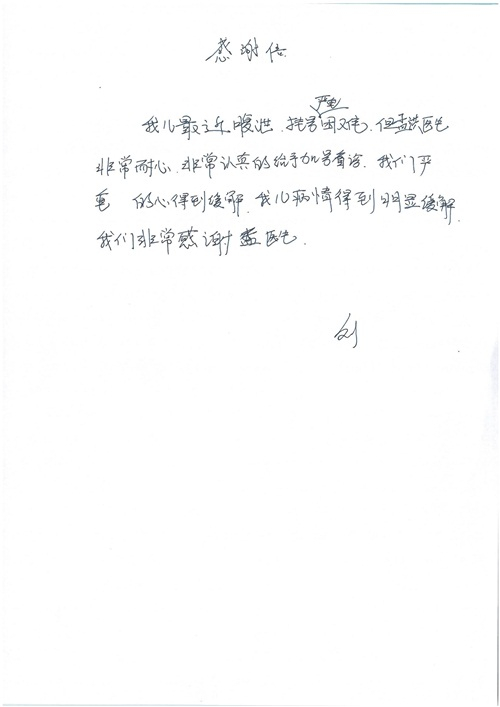 感谢信
我儿最近腹泄，挂号严重困难，但孟洪医生
非常耐心，非常认真的给予加号看诊，我们严
重 的心得到缓解，我儿病情得到明显缓解，
我们非常感谢孟医生.
刘